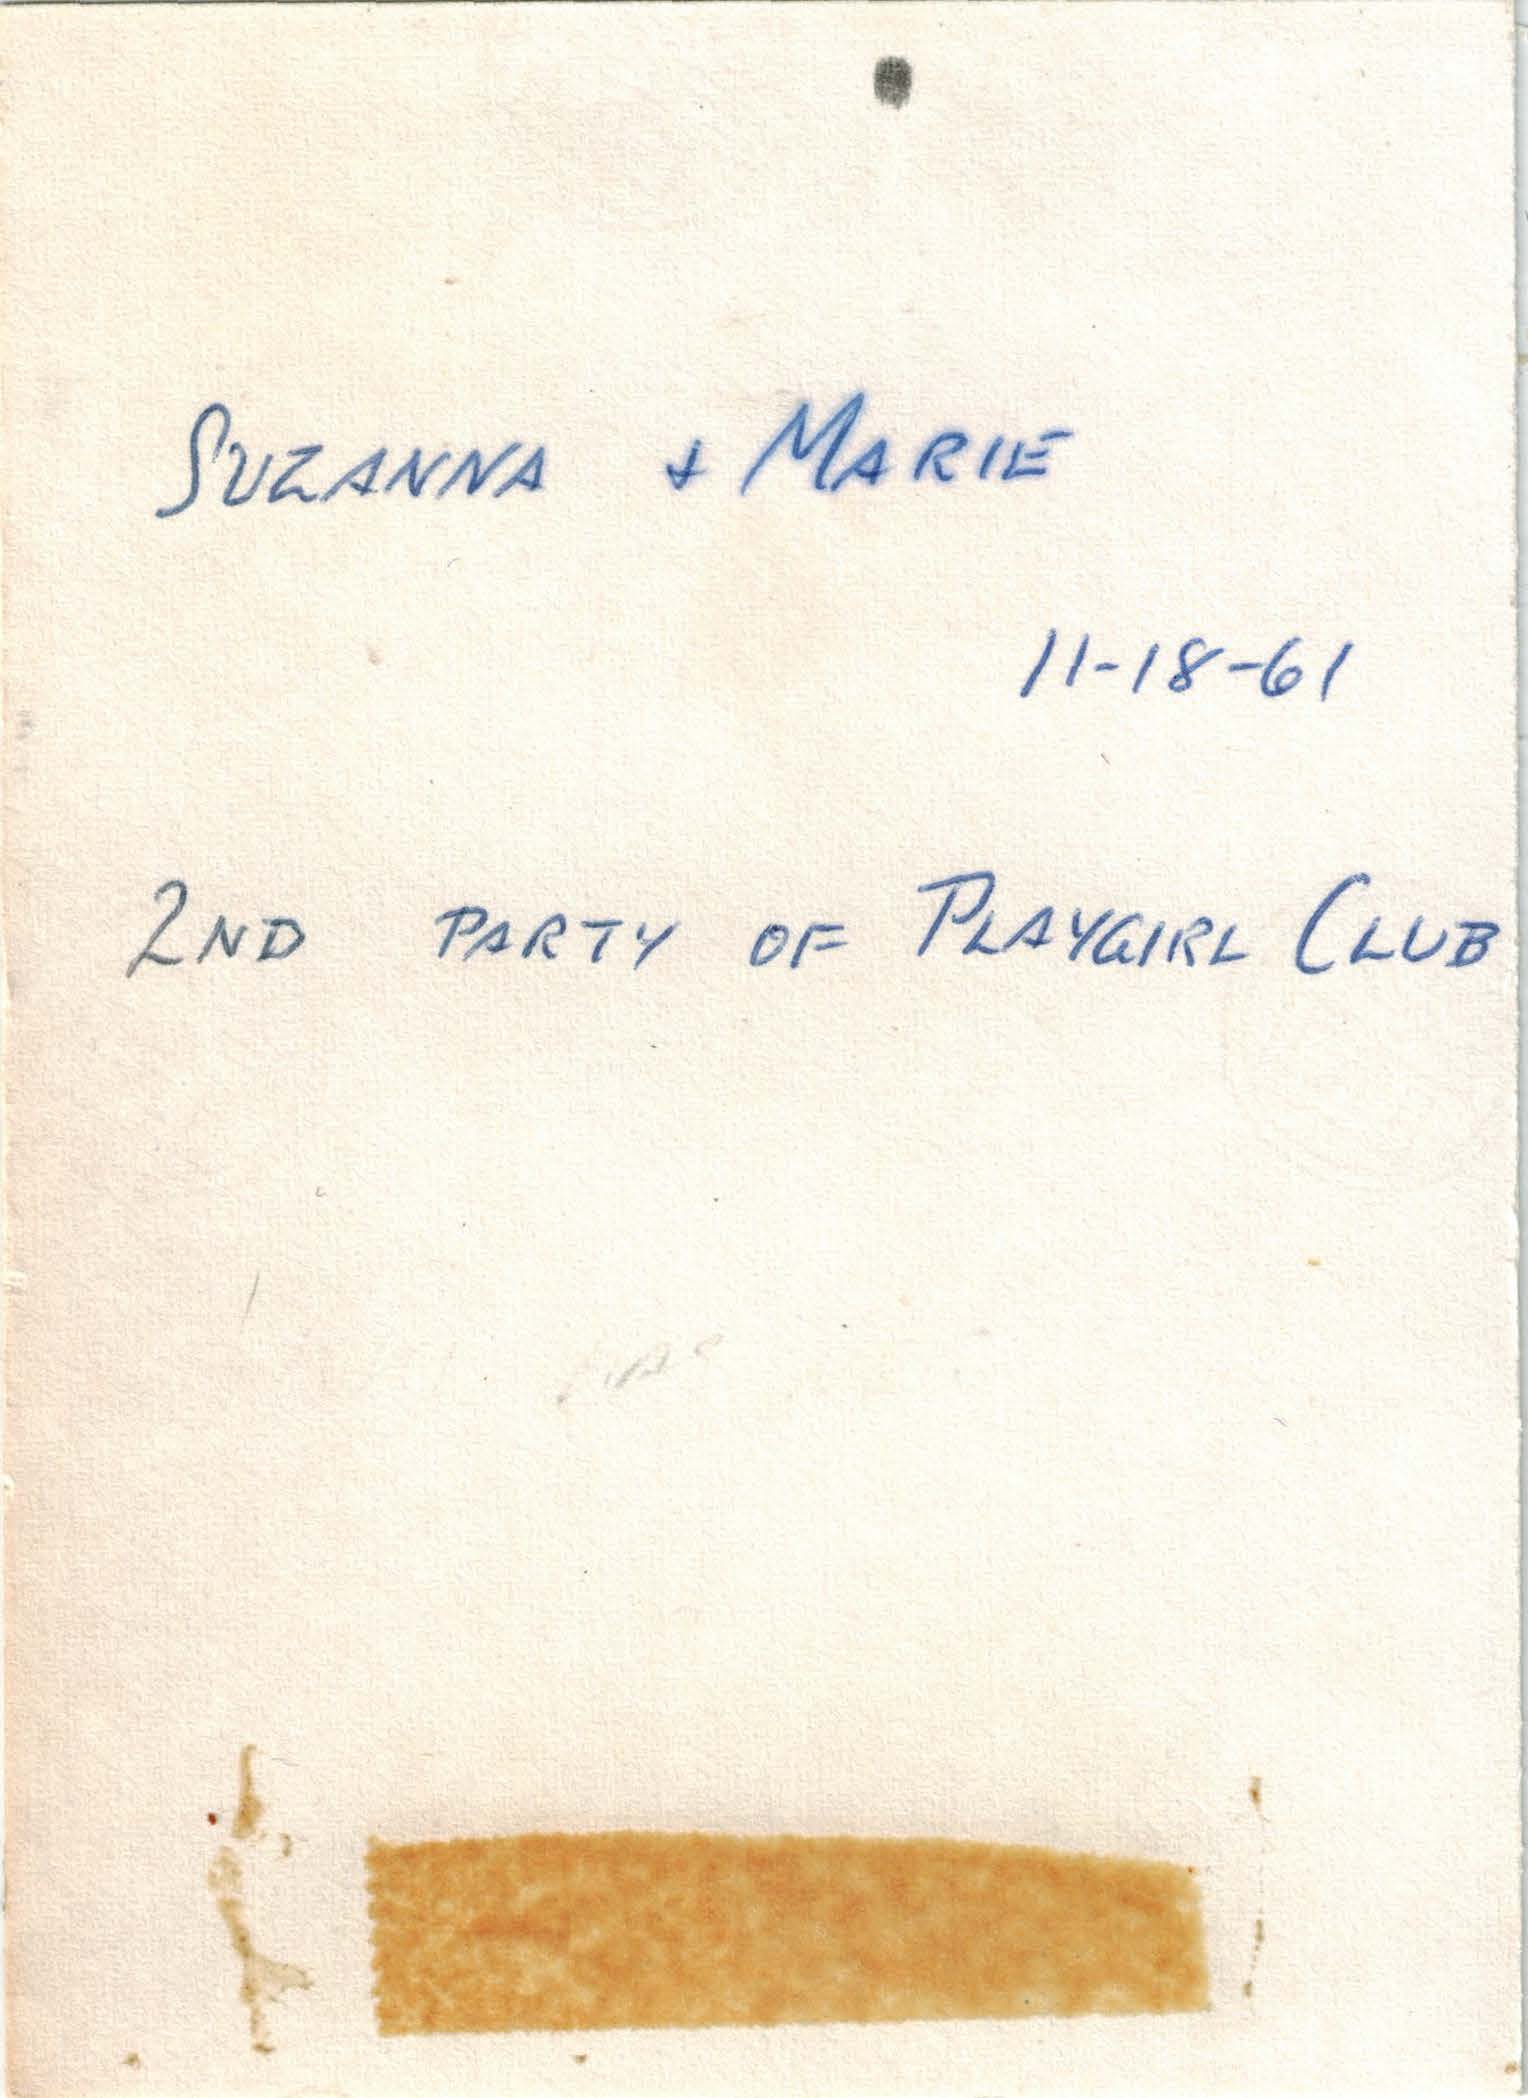 SUZANNA + MARIE
11-18-61
2ND PARTY OF PLAYGIRL CLUB